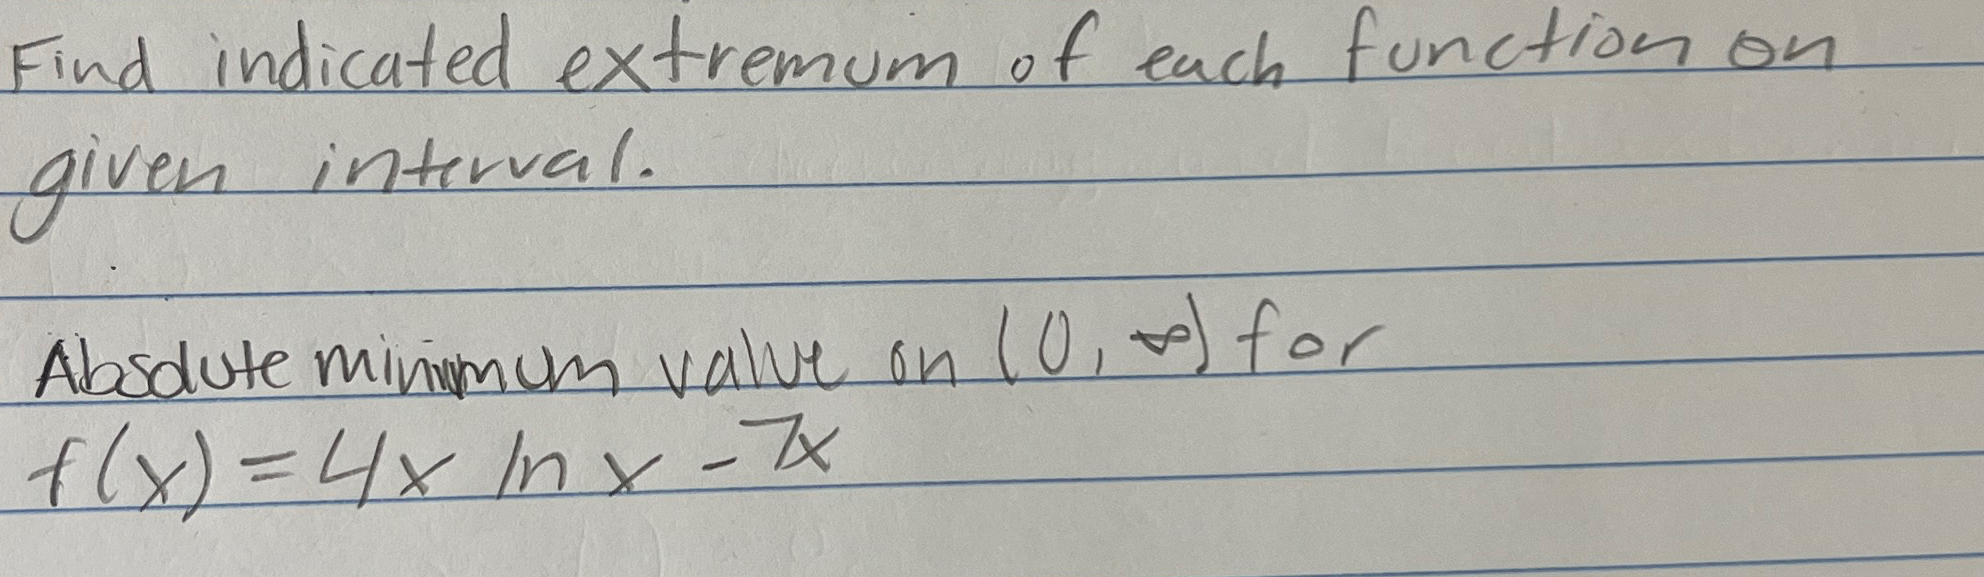 Find indicated extremum of each function on
given interval.
Absolute minimum value on (0, ∞) for
f(x) = 4x ln x - 7x